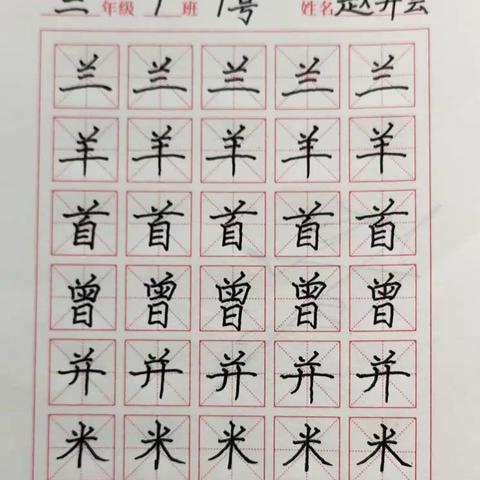 三年级 1班 1号 姓名
兰 兰 兰 兰 兰
羊 羊 羊 羊 羊
首 首 首 首 首
曾 曾 曾 曾 曾
并 并 并 并 并
米 米 米 米 米